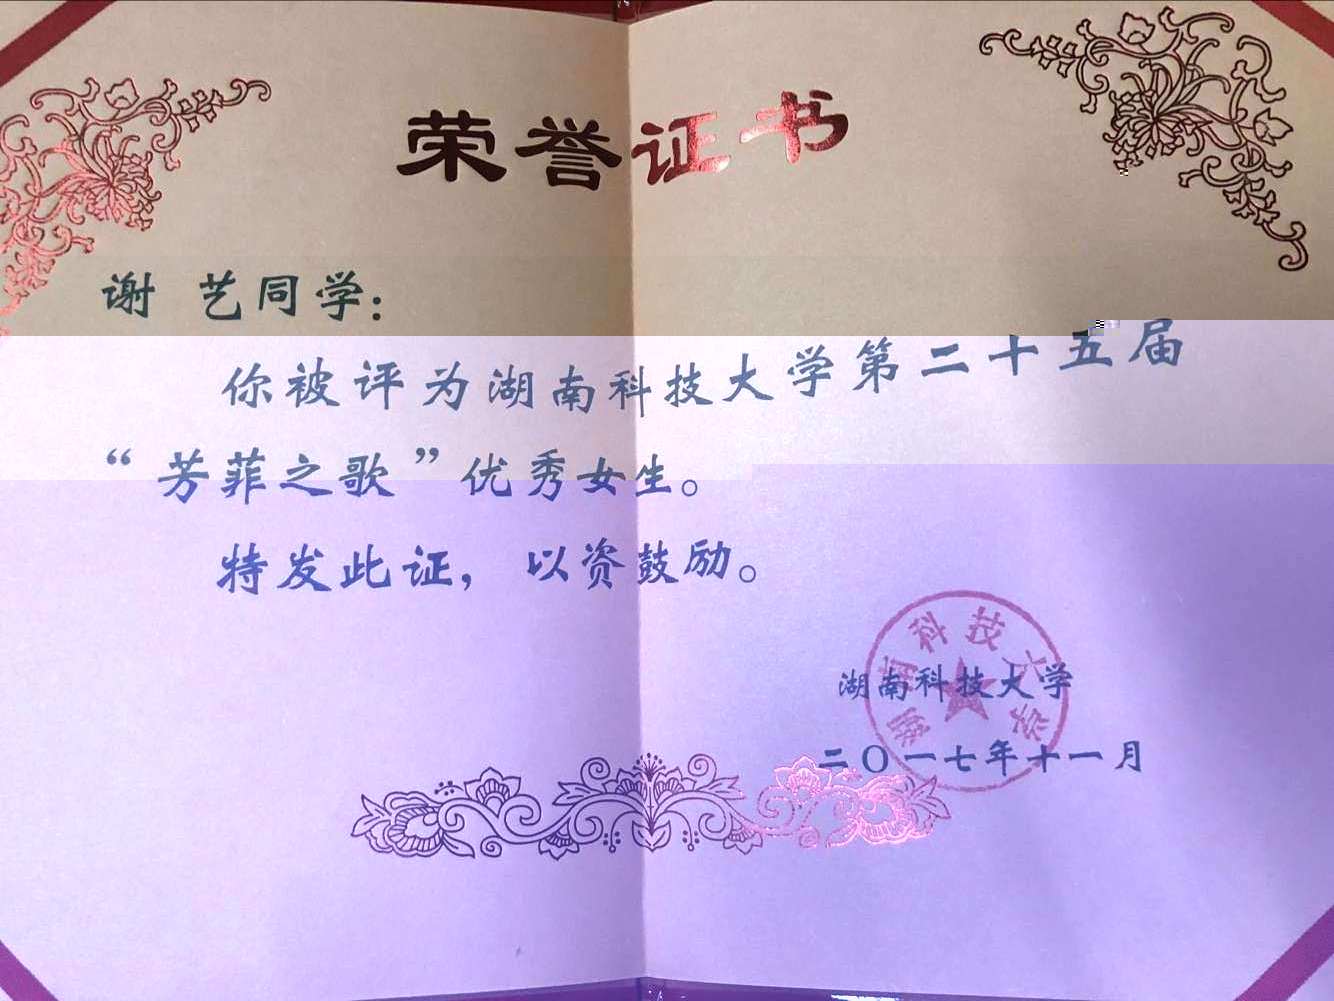 荣誉证书
谢 艺同学：
你被评为湖南科技大学第二十五届
“芳菲之歌”优秀女生。
特发此证，以资鼓励。
湖南科技大学
二〇一七年十一月